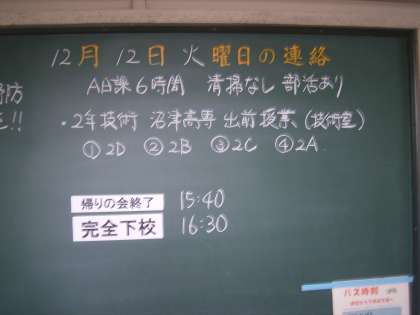 12月12日火曜日の連絡
A日課6時間 清掃なし 部活あり
・2年技術 沼津高専 出前授業(技術室)
①2D ②2B ③2C ④2A
帰りの会終了 15:40
完全下校 16:30
防
!!
バス時刻